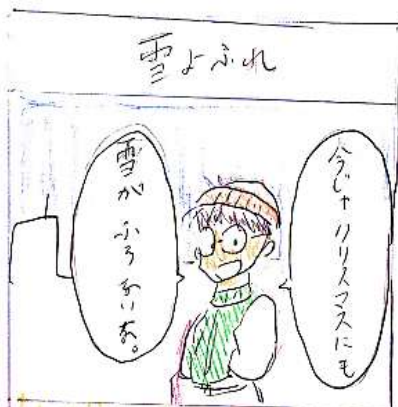 雪よふれ
今じゃクリスマスにも
雪がふらないな。